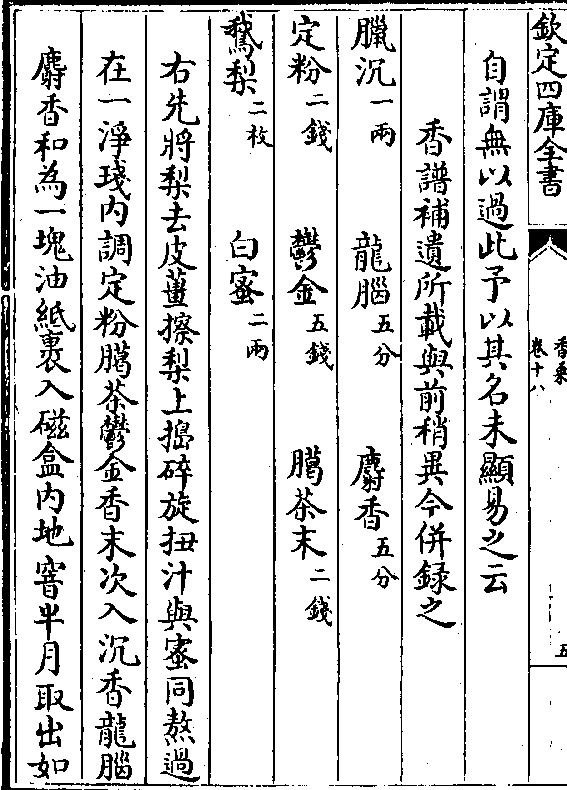 欽定四庫全書
香乘
卷十八
五
自謂無以過此予以其名未顯易之云
香譜補遺所載與前稍異今併録之
臘沉一兩　龍腦五分　麝香五分
定粉二錢　鬱金五錢　臈茶末二錢
鵞梨二枚　白蜜二兩
右先將梨去皮薑擦梨上搗碎旋扭汁與蜜同熬過
在一淨琖内調定粉臈茶鬱金香末次入沉香龍腦
麝香和為一塊油紙裹入磁盒内地窨半月取出如